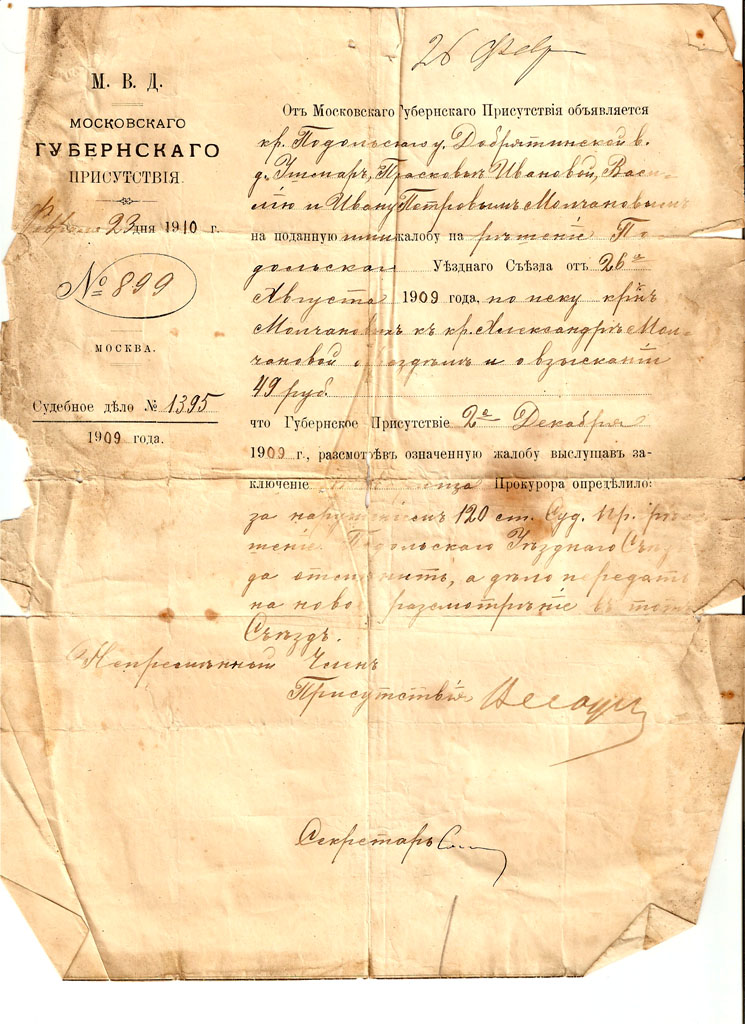 26 Фев
М. В. Д.
МОСКОВСКАГО
ГУБЕРНСКАГО
ПРИСУТСТВІЯ.
23 дня 1910 г.
№ 899
МОСКВА.
Судебное дѣло № 1395
1909 года.
Отъ Московскаго Губернскаго Присутствія объявляется
кр. Подольскаго у. Добрятинской в.
д. Прасковьѣ Ивановой, Васи-
лію и Ивану Петровымъ Молчановымъ
на поданную ими жалобу на рѣшеніе По
дольскаго Уѣзднаго Съѣзда отъ 26го
Августа 1909 года, по иску кр.
Молчановыхъ къ кр. Александрѣ Мол-
чановой о и о взысканіи
49 руб.
что Губернское Присутствіе 2го Декабря
1909 г., разсмотрѣвъ означенную жалобу выслушавъ за-
ключеніе Прокурора опредѣлило:
за нарушеніемъ 120 ст. Суд. Пр. рѣ
шеніе Подольскаго Уѣзднаго Съѣз
да отмѣнить, а дѣло передать
на новое разсмотрѣніе въ тотъ
Съѣздъ.
Непремѣнный Членъ
Присутствія
Секретарь